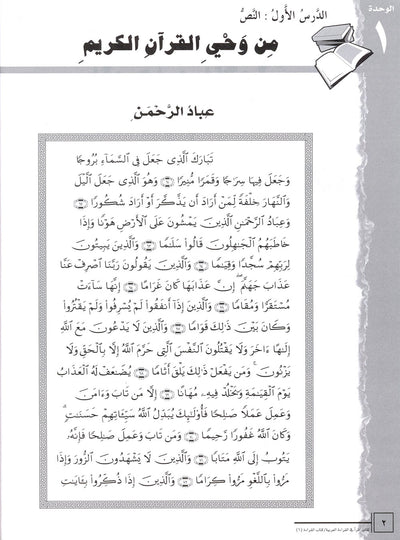 الوحدة
١
الدَّرسُ الأَوَّلُ : النَّصُّ
مِن وَحْيِ القرآنِ الكريمِ
عِبادُ الرَّحْمَنِ
تَبَارَكَ الَّذِي جَعَلَ فِي السَّمَآءِ بُرُوجًا
وَجَعَلَ فِيهَا سِرَاجًا وَقَمَرًا مُّنِيرًا ﴿٦١﴾ وَهُوَ الَّذِي جَعَلَ الَّيْلَ
وَالنَّهَارَ خِلْفَةً لِّمَنْ أَرَادَ أَن يَذَّكَّرَ أَوْ أَرَادَ شُكُورًا ﴿٦٢﴾
وَعِبَادُ الرَّحْمَـٰنِ الَّذِينَ يَمْشُونَ عَلَى الْأَرْضِ هَوْنًا وَإِذَا
خَاطَبَهُمُ الْجَـٰهِلُونَ قَالُوا سَلَـٰمًا ﴿٦٣﴾ وَالَّذِينَ يَبِيتُونَ
لِرَبِّهِمْ سُجَّدًا وَقِيَـٰمًا ﴿٦٤﴾ وَالَّذِينَ يَقُولُونَ رَبَّنَا اصْرِفْ عَنَّا
عَذَابَ جَهَنَّمَ ۖ إِنَّ عَذَابَهَا كَانَ غَرَامًا ﴿٦٥﴾ إِنَّهَا سَآءَتْ
مُسْتَقَرًّا وَمُقَامًا ﴿٦٦﴾ وَالَّذِينَ إِذَآ أَنفَقُوا لَمْ يُسْرِفُوا وَلَمْ يَقْتُرُوا
وَكَانَ بَيْنَ ذَٰلِكَ قَوَامًا ﴿٦٧﴾ وَالَّذِينَ لَا يَدْعُونَ مَعَ اللَّهِ
إِلَـٰهًا ءَاخَرَ وَلَا يَقْتُلُونَ النَّفْسَ الَّتِي حَرَّمَ اللَّهُ إِلَّا بِالْحَقِّ وَلَا
يَزْنُونَ ۚ وَمَن يَفْعَلْ ذَٰلِكَ يَلْقَ أَثَامًا ﴿٦٨﴾ يُضَـٰعَفْ لَهُ الْعَذَابُ
يَوْمَ الْقِيَـٰمَةِ وَيَخْلُدْ فِيهِ مُهَانًا ﴿٦٩﴾ إِلَّا مَن تَابَ وَءَامَنَ
وَعَمِلَ عَمَلًا صَـٰلِحًا فَأُولَـٰٓئِكَ يُبَدِّلُ اللَّهُ سَيِّـَٔاتِهِمْ حَسَنَـٰتٍ ۗ
وَكَانَ اللَّهُ غَفُورًا رَّحِيمًا ﴿٧٠﴾ وَمَن تَابَ وَعَمِلَ صَـٰلِحًا فَإِنَّهُ
يَتُوبُ إِلَى اللَّهِ مَتَابًا ﴿٧١﴾ وَالَّذِينَ لَا يَشْهَدُونَ الزُّورَ وَإِذَا
مَرُّوا بِاللَّغْوِ مَرُّوا كِرَامًا ﴿٧٢﴾ وَالَّذِينَ إِذَا ذُكِّرُوا بِـَٔايَـٰتِ
٢